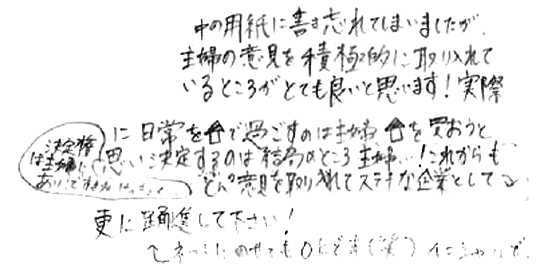 中の用紙に書き忘れてしまいましたが、
主婦の意見を積極的に取り入れて
いるところがとても良いと思います！実際
に日常を🏠で過ごすのは主婦 🏠を買おうと
思い決定するのは結局のところ主婦…！これからも
どんどん意見を取り入れてステキな企業としてる
更に踊進して下さい！
決定権
は主婦に
ありですもん
↑ネットにのせてもOKです(笑) イニシャルで